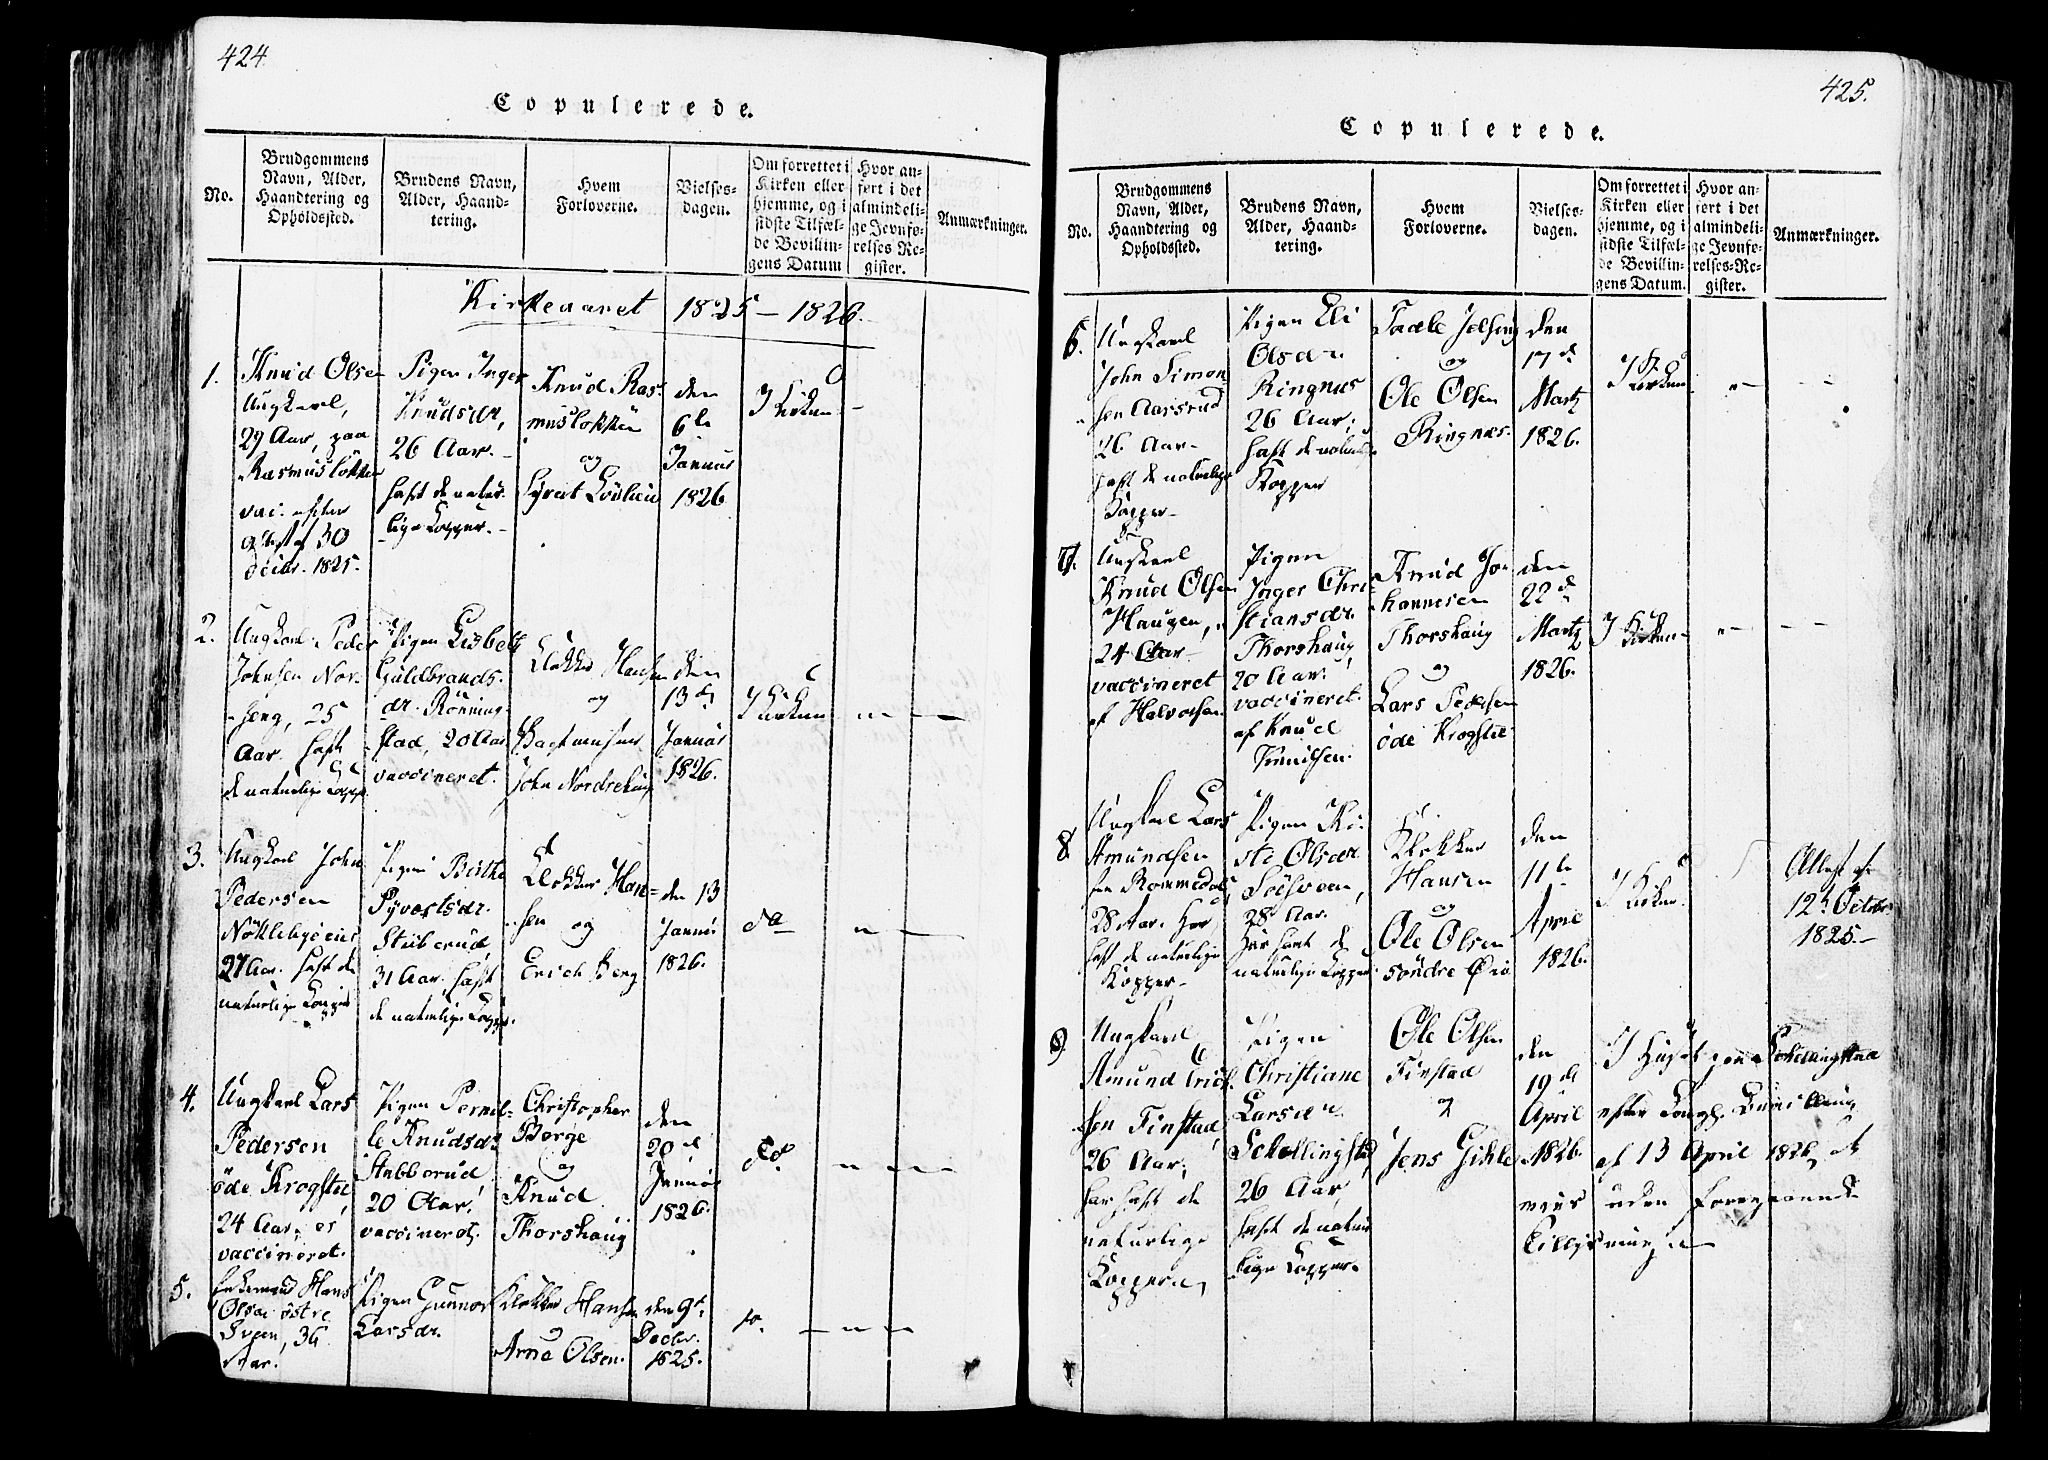 424
Copulerede.
No.
Brudgommens
Navn, Alder,
Haandtering og
Opholdssted.
Brudens Navn,
Alder, Haand-
tering.
Hvem
Forloverne.
Vielses-
dagen.
Om forrettet i
Kirken eller
hjemme, og i
sidste Tilfæl-
de Bevillin-
gens Datum
Hvor an-
ført i det
almindeli-
ge Jevnfø-
relses Re-
gister.
Anmærkninger.
Kirkeaaret 1825 – 1826.
1.
Knud Olsen
Ungkarl,
29 Aar, paa
Rasmusløkken
vac. efter
Attest af 30
1825.
Pigen Inger
Knudsdr,
26 Aar.
haft de natur-
lige Kopper.
Knud Ras-
musløkken
og
Syvert
den
6te
Januar
1826
I Kirken
2.
Ungkarl Peder
Johnsen Nor-
seng, 25
Aar. haft
de naturlige Kopp.
Pigen Lisbeth
Guldbrands-
dr. Rönning-
stad, 20 Aar
vaccineret.
Klokker Hansen
og
John Nordrehaug
den
13de
Januar
1826.
I Kirken
3.
Ungkarl John
Pedersen
Nöklebyeie
27 Aar. haft de
naturlige Kopper
Pigen Berthe
Syvertsdr.
Stuberud,
31 Aar. haft
de naturlige Kopp.
Klokker Han-
sen og
Erich Berg
den 13
Januar
1826.
do
4.
Ungkarl Lars
Pedersen
öde Krogstie
24 Aar, er
vaccineret.
Pigen Pernil-
le Knudsdr
Stubberud
20 Aar,
vaccineret.
Christopher
Berge
og
Knud
Thorshaug
den
20de
Januar
1826.
do.
5.
Enkemand Hans
Olsen östre
Sveen, 36
Aar.
Pigen Gunnor
Larsdr.
Klokker Hansen
Arne Olsen.
den 9de
Decbr.
1825.
do.
425.
Copulerede.
No.
Brudgommens
Navn, Alder,
Haandtering og
Opholdssted.
Brudens Navn,
Alder, Haand-
tering.
Hvem
Forloverne.
Vielses-
dagen.
Om forrettet i
Kirken eller
hjemme, og i
sidste Tilfæl-
de Bevillin-
gens Datum.
Hvor an-
ført i det
almindeli-
ge Jevnfø-
relses-Re-
gister.
Anmærkninger.
6.
Ungkarl
John Simon-
sen Aarsrud
26 Aar
haft de naturlige
Kopper
Pigen Eli
Olsdr.
Ringnes
26 Aar,
haft de naturlige
Kopper
og
Ole Olsen
Ringnes.
den
17de
Martz
1826.
I Kirken
7.
Ungkarl
Knud Olsen
Haugen,
24 Aar
vaccineret
af Halvorsen
Pigen
Inger Chri-
stiansdr.
Thorshaug,
20 Aar.
vaccineret
af Knud
Knudsen.
Knud Jo-
hannesen
Thorshaug
og
Lars Pedersen
öde Krogstie
den
22de
Martz
1826.
I Kirken
8
Ungkarl Lars
Amundsen
fra Rommedal,
28 Aar. Har
haft de naturlige
Kopper
Pigen Ki-
sti Olsdr
28 Aar.
Har havt de
naturlige Kopper
Klokker
Hansen
og
Ole Olsen
söndre Öie
den
11te
April
1826.
I Kirken.
Attest af
12te October
1825.
9.
Ungkarl
Amund Erich-
sen Finstad,
26 Aar,
har haft de
naturlige
Kopper
Pigen
Christiane
Larsdr.
Schellingstad,
26 Aar,
haft de natur-
lige Kopper
Ole Olsen
Finstad
og
Jens Gihle
den
19de
April
1826
I Huset paa Schellingstad
efter Kongl. Bevilling
af 13 April 1826, dog
uden foregaaende
Tillysning